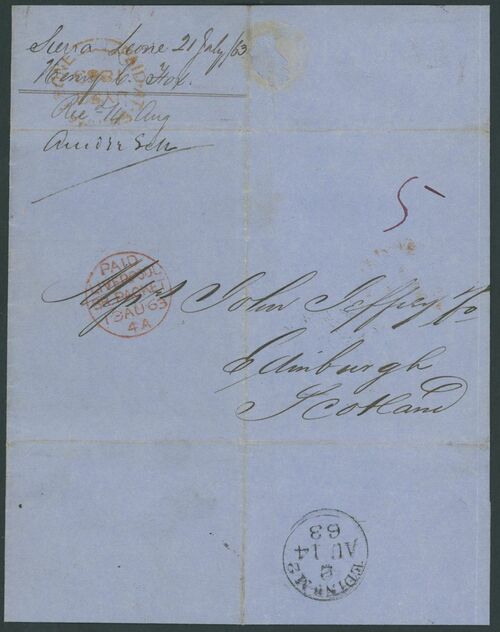 Sierra Leone 21 July/63
Henry C. Fox.
Rec 14 Aug
5
PAID
LIVERPOOL
BR PACKET
13 AU 63
4A
Messrs John Jeffrey & Co
Edinburgh
Scotland
EDINR M2
2
AU 14
63